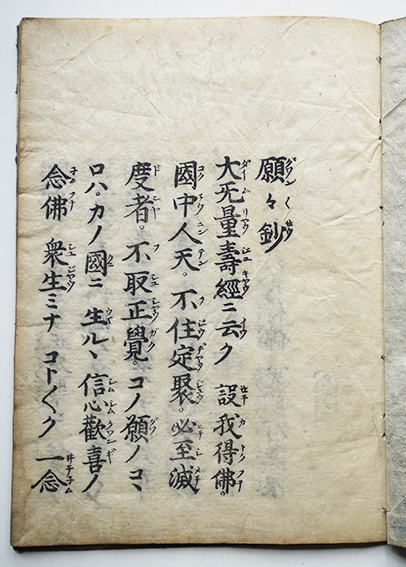 願々鈔
大无量壽經ニ云ク 設我得佛。
國中人天。不住定聚。必至滅
度者。不取正覺。コノ願ノコヽ
ロハ。カノ國ニ生ルヽ信心歡喜ノ
念佛 衆生ミナ コト〱ク 一念